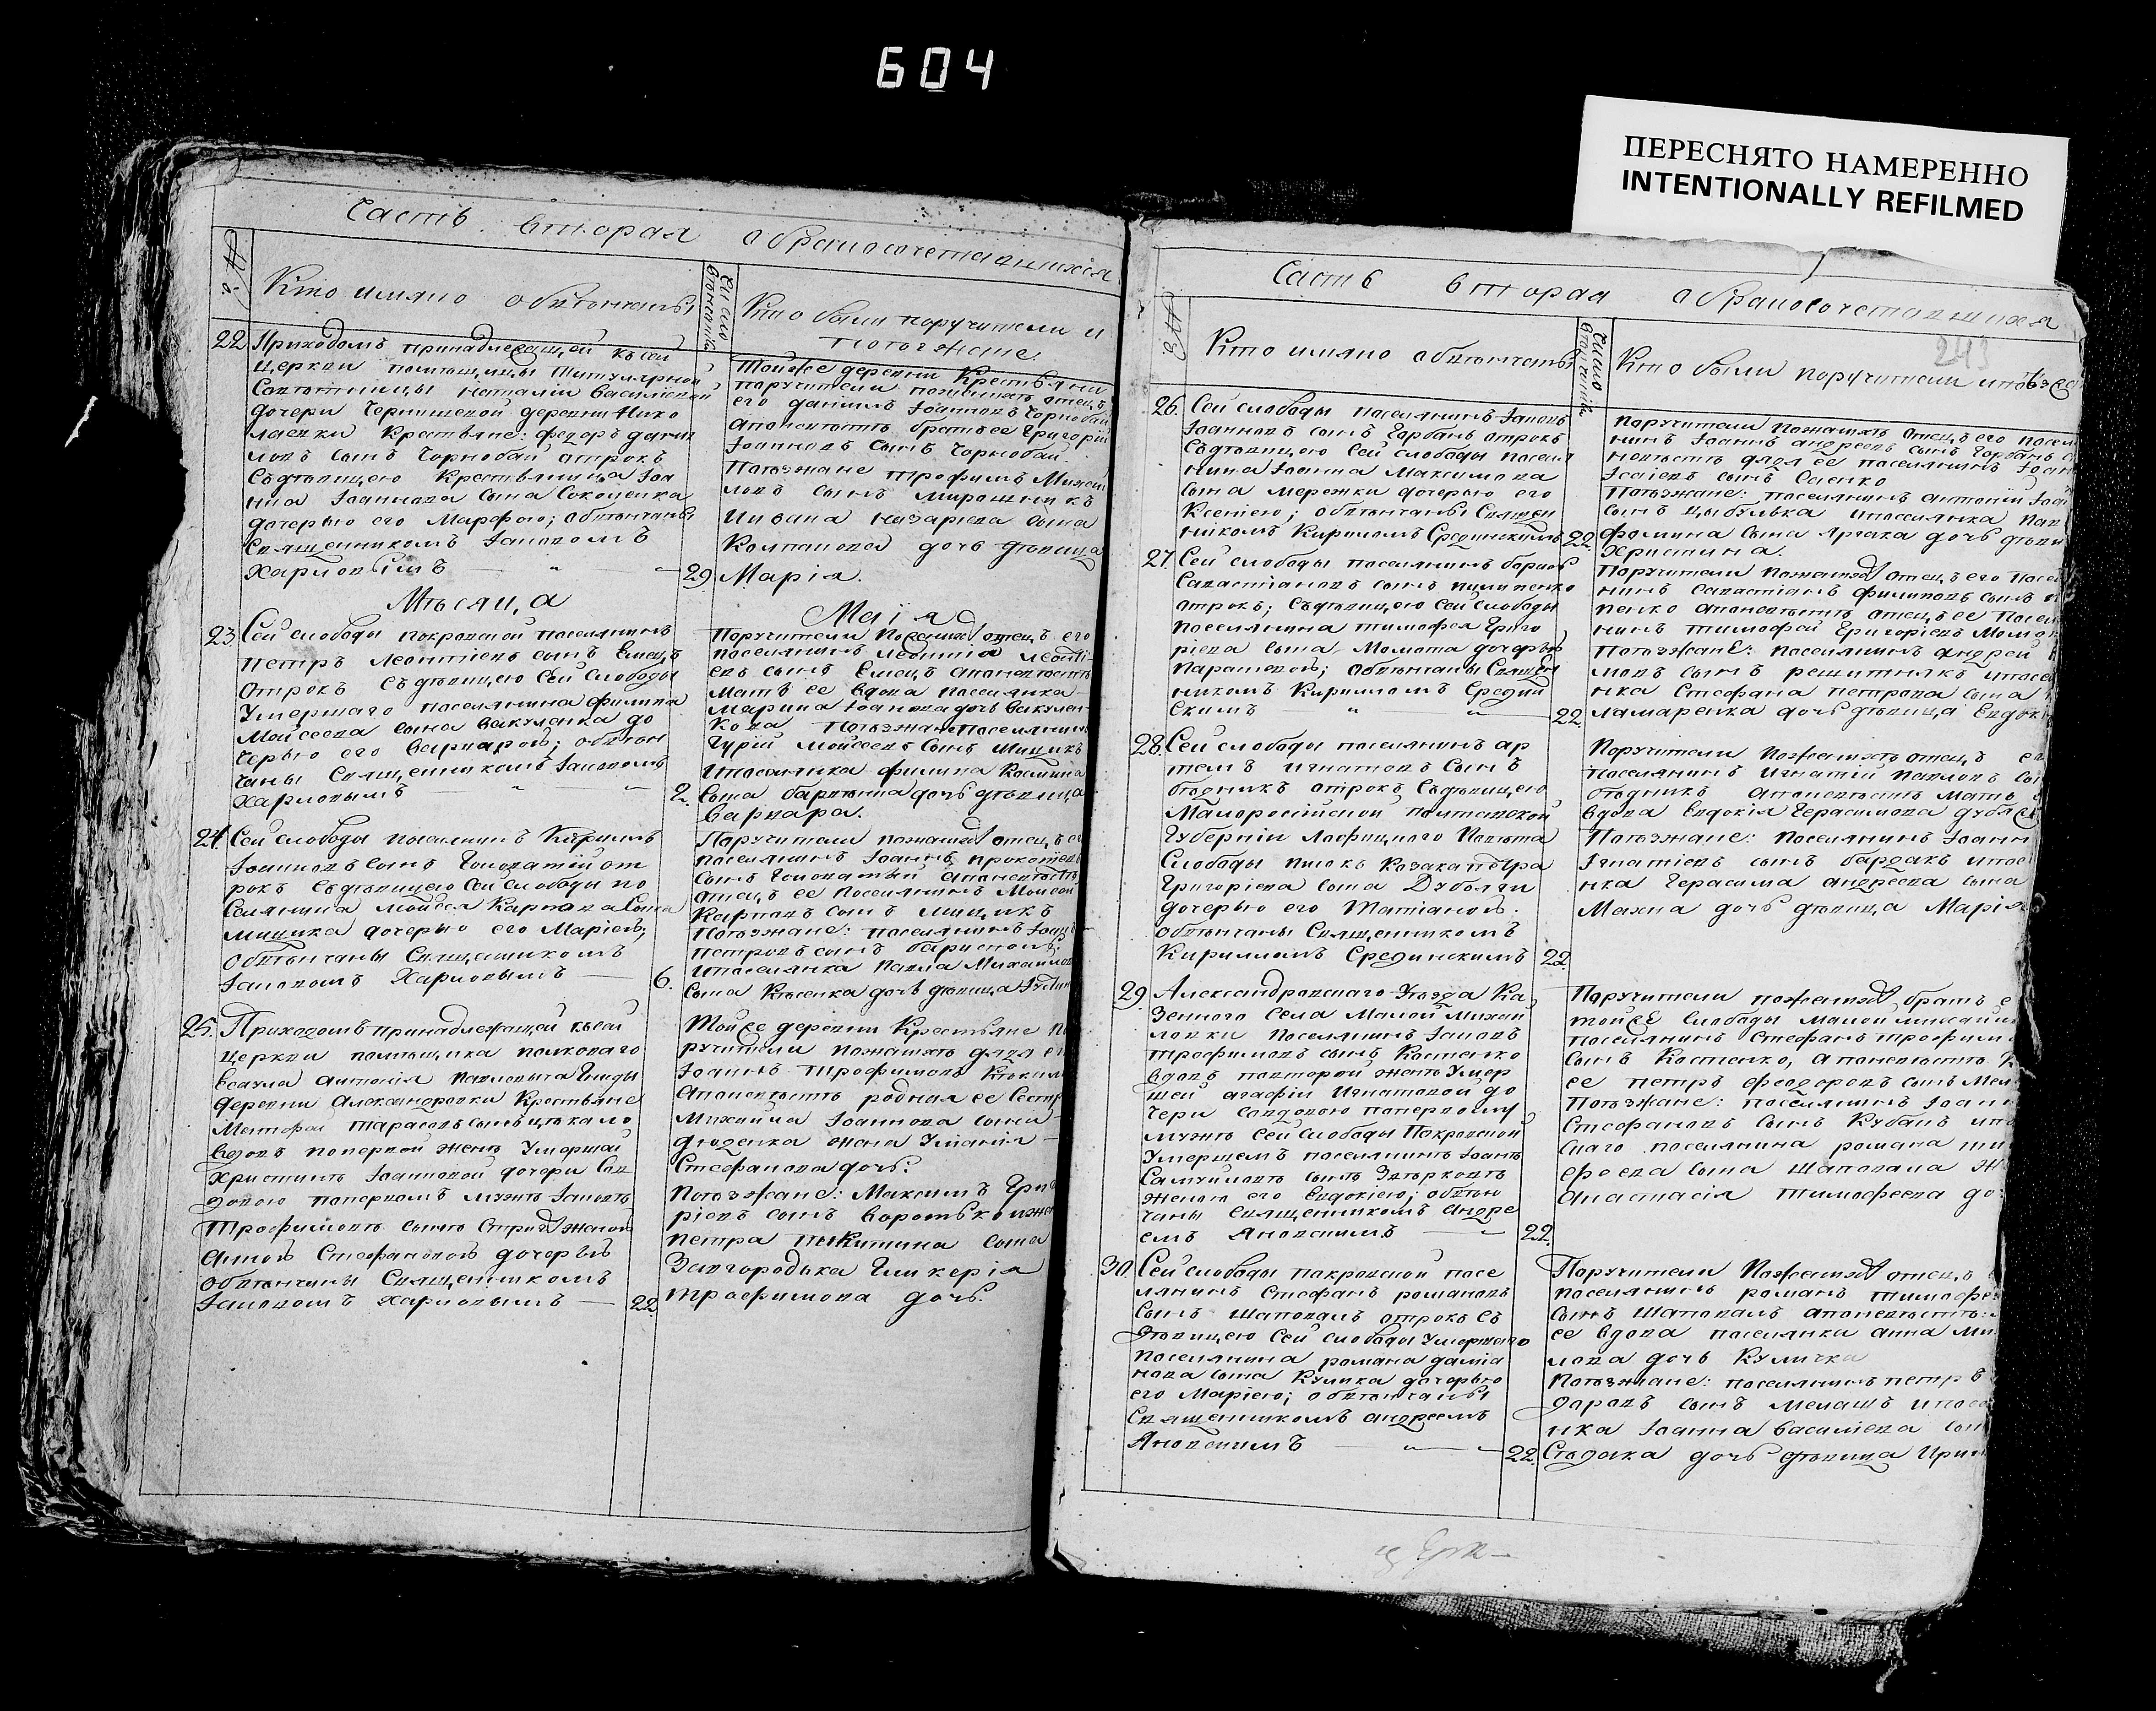 604
ПЕРЕСНЯТО НАМЕРЕННО
INTENTIONALLY REFILMED
Часть вторая о бракосочетавшихся
№
Кто имяно обвѣнчаны
Число
Кто были поручители и
поѣзжане
22 Приходомъ принадлежащей къ сей
церкви помѣщицы Титулярной
Совѣтницы Наталіи Василіевой
дочери Чернишевой деревни Нико
лаевки Крестьяне: Федоръ Дании
ловъ сынъ Чорнобай отрокъ
съ дѣвицею Крестьянина Іоа
нна Іоаннова сына
дочерью его Марфою; обвѣнчаны
Священникомъ Іаковомъ
Харловымъ 29
Тойже деревни Крестьяни
поручители по женихѣ отецъ
его Даніилъ Іоанновъ Чорнобай
а по невѣстѣ братъ ее Григорій
Іоанновъ сынъ Чорнобай
Поѣзжане Трофимъ Михай
ловъ сынъ Мирошникъ
и Ивана Назаріева сына
Колпакова дочь дѣвица
Марія.
Мѣсяца Маія
23. Сей слободы Покровской поселянинъ
Петръ Леонтіевъ сынъ Емецъ
отрокъ съ дѣвицею сей слободы
умершаго поселянина Филипа
Мойсеева сына Вакуленка до
черью его Варварою; обвѣн
чаны Священникомъ Іаковомъ
Харловымъ 2.
Поручители по женихѣ отецъ его
поселянинъ Леонтій Леонті-
евъ сынъ Емецъ а по невѣстѣ
мать ее вдова поселянка
Марина Іоаннова дочь Вакулен-
кова Поѣзжане поселянинъ
Гурій Мойсеевъ сынъ Мицикъ
и поселянка Филипа Космина
сына дочь дѣвица
Варвара.
24. Сей слободы поселянинъ Кирилъ
Іоанновъ сынъ Головатій от
рокъ съ дѣвицею сей слободы по
селянина Мойсея Карпова сына
Мицика дочерью его Маріею;
обвѣнчаны Священникомъ
Іаковомъ Харловымъ 6.
Поручители по женихѣ отецъ ег
поселянинъ Іоаннъ Прокопіевъ
сынъ Головатый а по невѣстѣ
отецъ ее поселянинъ Мойсей
Карповъ сынъ Мицикъ
Поѣзжане: поселянинъ Іоанн
Петровъ сынъ
и поселянка Павла Михайлова
сына дочь дѣвица
25. Приходомъ принадлежащей къ сей
церкви помѣщика полковаго
Есаула Антонія Павловича Гниды
деревни Александровки Крестьяне
Матфей Тарасовъ сынъ Цѣкало
вдовъ по первой женѣ умершей
Христинѣ Іоанновой дочери съ в
довою по первомъ мужѣ Іаковѣ
Трофимовѣ сынѣ женою
Анною Стефановою дочерью
обвѣнчаны Священникомъ
Іаковомъ Харловымъ 22.
Тойже деревни Крестьяне по
ручители по женихѣ дядя ег
Іоаннъ Трофимовъ
а по невѣстѣ родная ее сестр
Михайла Іоаннова сына
жена Уліанія
Стефанова дочь:
Поѣзжане: Максимъ Григо
ріевъ сынъ Воротько и жена
Петра Никитина сына
Загородька Гликерія
Трофимова дочь.
Часть вторая о бракосочетавшихся
243
№
Кто имяно обвѣнчаны
Число
Кто были поручители и поѣзжа
26. Сей слободы поселянинъ Іаковъ
Іоанновъ сынъ Горбань отрокъ
съ дѣвицею сей слободы поселя
нина Іоанна Максимова
сына Мережки дочерью его
Ксеніею; обвѣнчаны Священ
никомъ Кириломъ Срединскимъ 22.
Поручители по женихѣ отецъ его посел
нинъ Іоаннъ Андреевъ сынъ Горбань а
невѣстѣ дядя ее поселянинъ Іоан
Ісаіевъ сынъ Саенко
Поѣзжане: поселянинъ Антоній Іоан
сынъ Цыбулька и поселянка Пав
Фомина сына дочь дѣви
Христина.
27. Сей слободы поселянинъ Борисъ
Савастіановъ сынъ Пилипенко
отрокъ; съ дѣвицею сей слободы
поселянина Тимофея Григо
ріева сына Момота дочерью
Параскевою; обвѣнчаны Священ
никомъ Кириломъ Средин
скимъ 22.
Поручители по женихѣ отецъ его посел
нинъ Савастіанъ Филиповъ сынъ
пенко а по невѣстѣ отецъ ее посел
нинъ Тимофей Григоріевъ Момот
Поѣзжане: поселянинъ Андрей
мовъ сынъ Решитнякъ и посел
нка Стефана Петрова сына
ламаренка дочь дѣвица Евдокі
28. Сей слободы поселянинъ Ар
темъ Игнатовъ сынъ
Бѣдникъ отрокъ съ дѣвицею
Малороссійской Полтавской
Губерніи Лофицкого Повѣта
Слободы Писокъ Козака Петра
Григоріева сына Дубляги
дочерью его Татіаною.
обвѣнчаны Священникомъ
Кириломъ Срединскимъ 22.
Поручители по женихѣ отецъ ег
поселянинъ Игнатій Павловъ сы
Бѣдникъ а по невѣстѣ мать
вдова Евдокія Герасимова Дубляг
Поѣзжане: поселянинъ Іоанн
Игнатіевъ сынъ Бардакъ и посел
нка Герасима Андреева сына
Махна дочь дѣвица Марія
29. Александровскаго Уѣзда Ка
зенного Села Малой Михай
ловки поселянинъ Іаковъ
Трофимовъ сынъ Костенко
вдовъ по второй женѣ умер
шей Агафіи Игнатовой до
чери съ вдовою по первому
мужѣ сей слободы Покровской
умершемъ поселянинѣ Іоаннѣ
Самуйловѣ сынѣ
женою его Евдокіею; обвѣн
чаны Священникомъ Андре
емъ Яновскимъ 22.
Поручители по женихѣ братъ е
тойже слободы Малой Михайл
поселянинъ Стефанъ Трофим
сынъ Костенко, а по невѣстѣ
ее Петръ Феодоровъ сынъ
Поѣзжане: поселянинъ Іоанн
Стефановъ сынъ Кубанъ и по
скаго поселянина Романа Тим
офеева сына Шаповала ж
Анастасія Тимофеева до
30. Сей слободы Покровской посе
лянинъ Стефанъ Романовъ
сынъ Шаповалъ отрокъ съ
дѣвицею сей слободы умершаго
поселянина Романа Даміа
нова сына Кулика дочерью
его Маріею; обвѣнчаны
Священникомъ Андреемъ
Яновскимъ 22.
Поручители по женихѣ отецъ
поселянинъ Романъ Тимофе
сынъ Шаповалъ а по невѣстѣ:
ее вдова поселянка Анна Ми
лова дочь Куличка
Поѣзжане: поселянинъ Петръ
сынъ и посел
нка Іоанна Василіева сы
дочь дѣвица Ирин